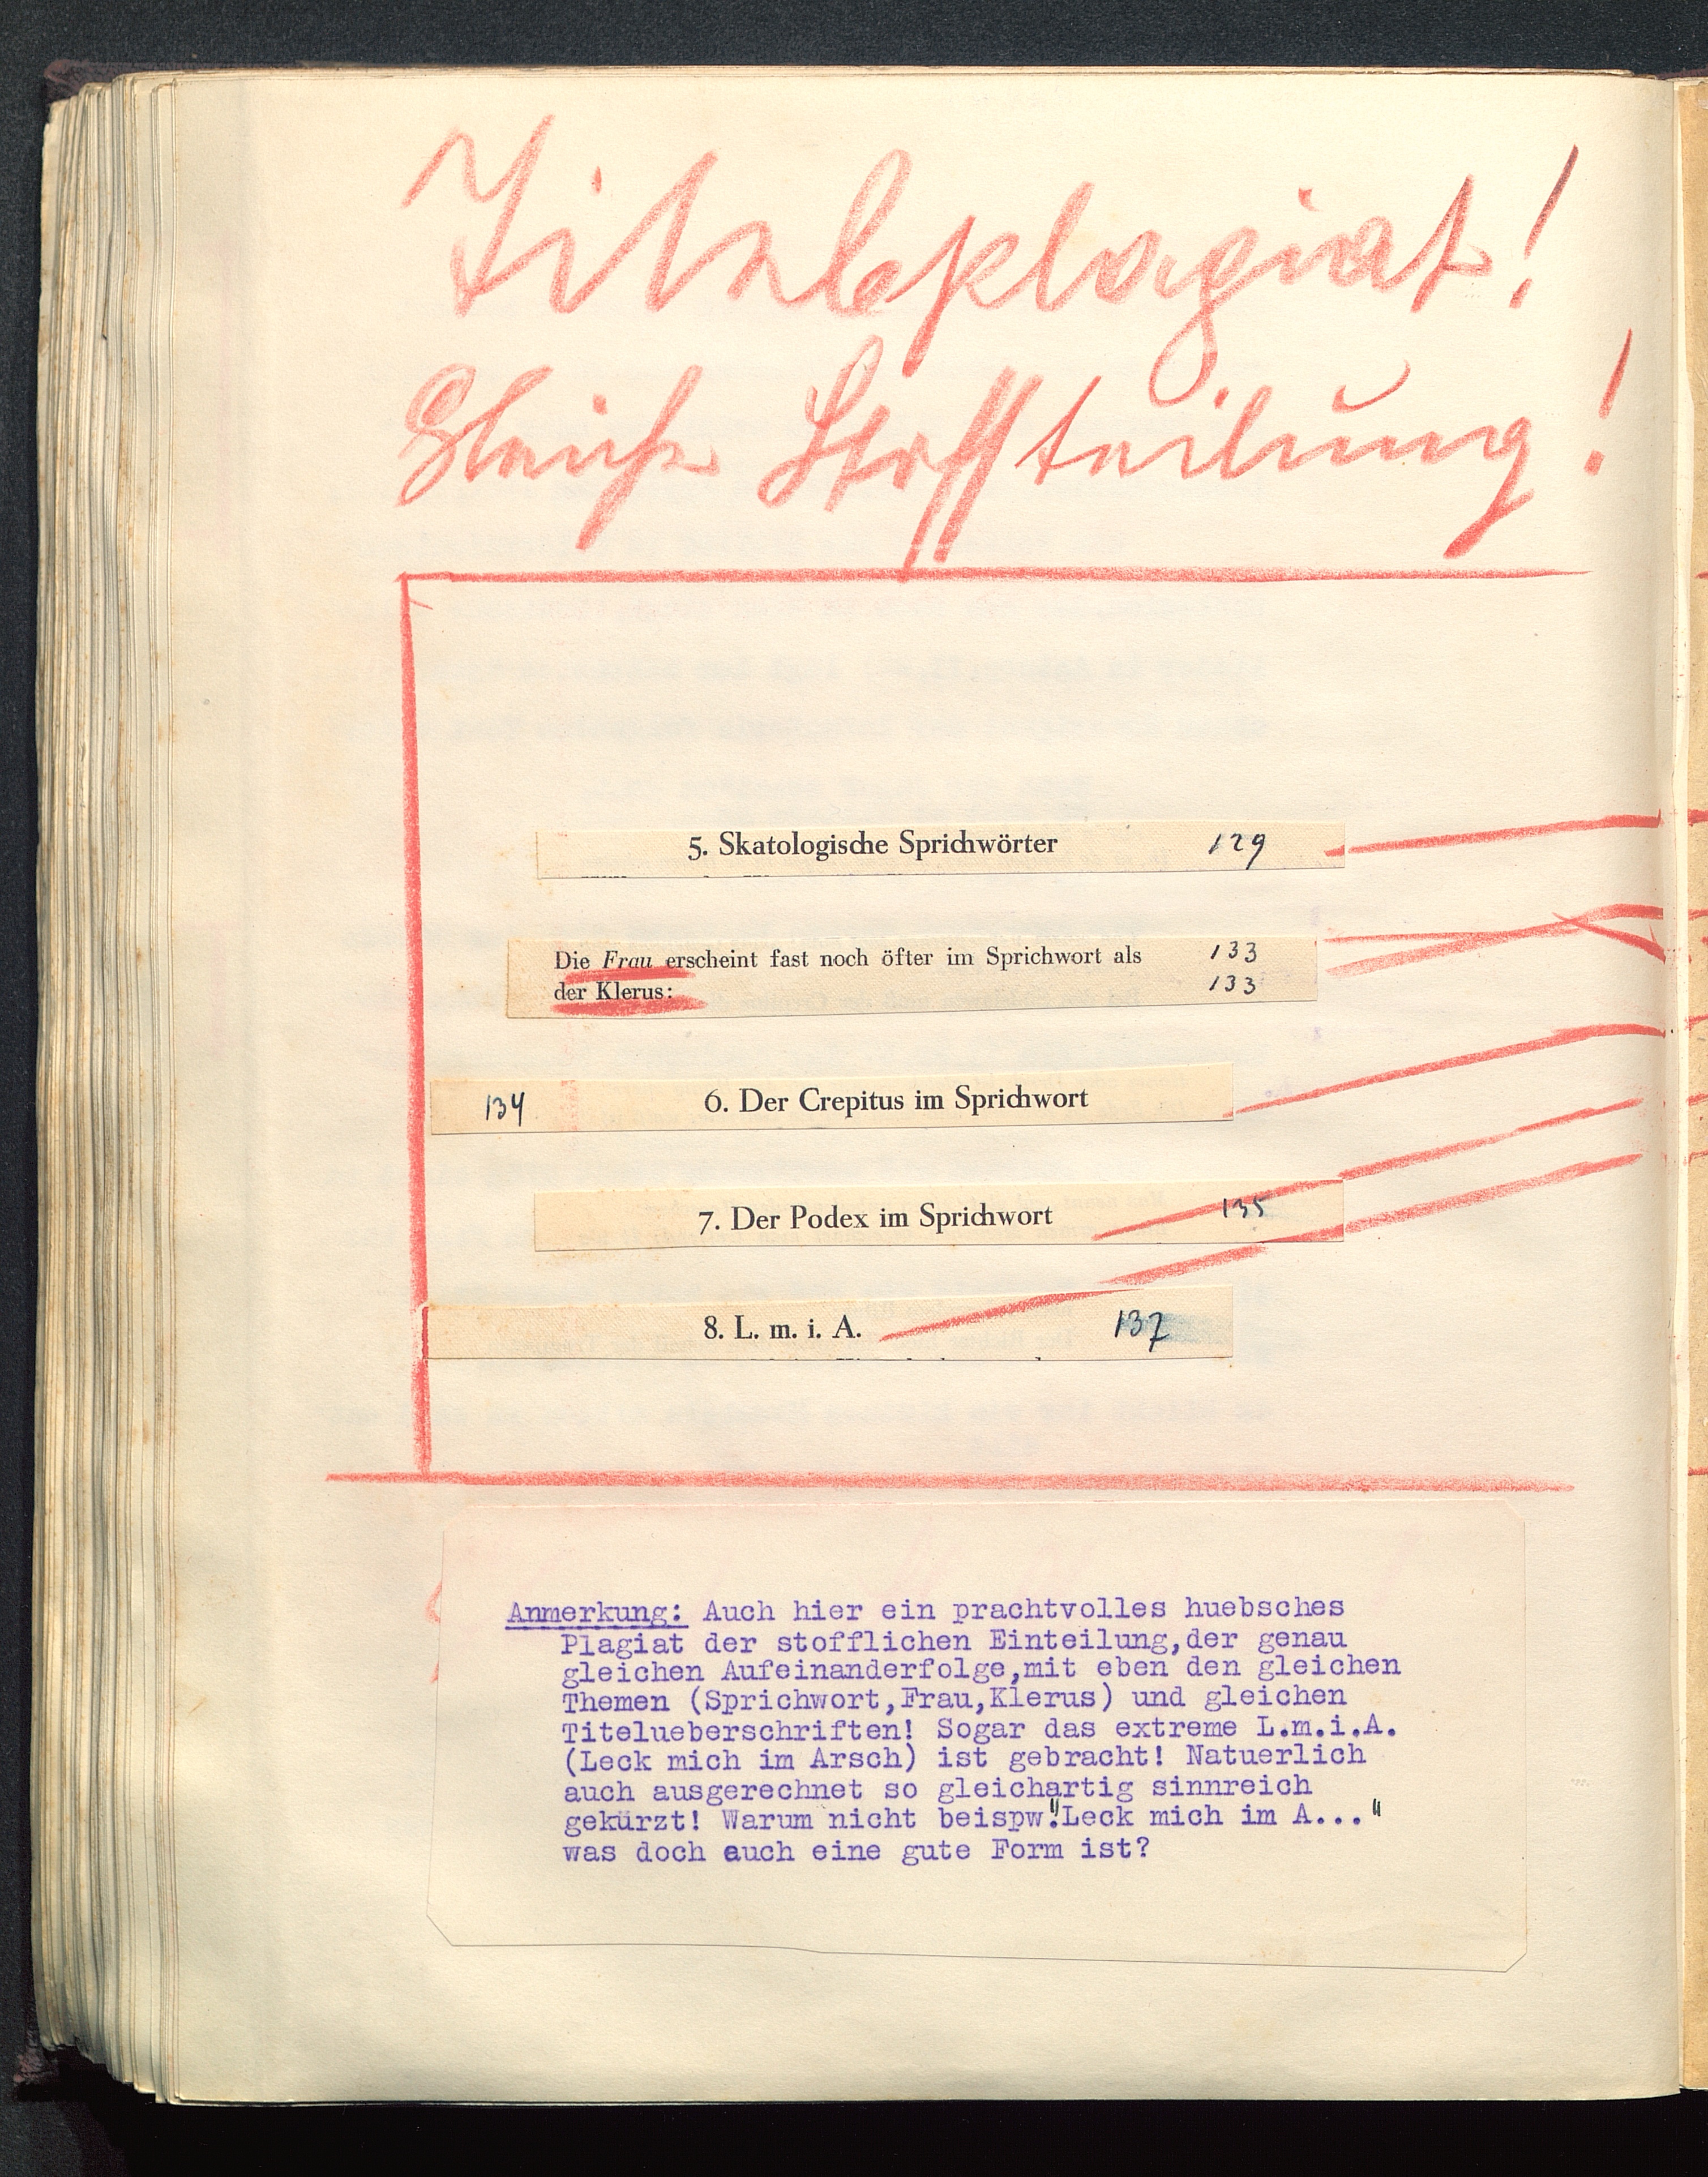 Titelplagiat!
Gleiche Stoffteilung!
5. Skatologische Sprichwörter 129
Die Frau erscheint fast noch öfter im Sprichwort als 133
der Klerus: 133
134 6. Der Crepitus im Sprichwort
7. Der Podex im Sprichwort 135
8. L. m. i. A. 137
Anmerkung: Auch hier ein prachtvolles huebsches
Plagiat der stofflichen Einteilung,der genau
gleichen Aufeinanderfolge,mit eben den gleichen
Themen (Sprichwort,Frau,Klerus) und gleichen
Titelueberschriften! Sogar das extreme L.m.i.A.
(Leck mich im Arsch) ist gebracht! Natuerlich
auch ausgerechnet so gleichartig sinnreich
gekürzt! Warum nicht beispw."Leck mich im A..."
was doch auch eine gute Form ist?